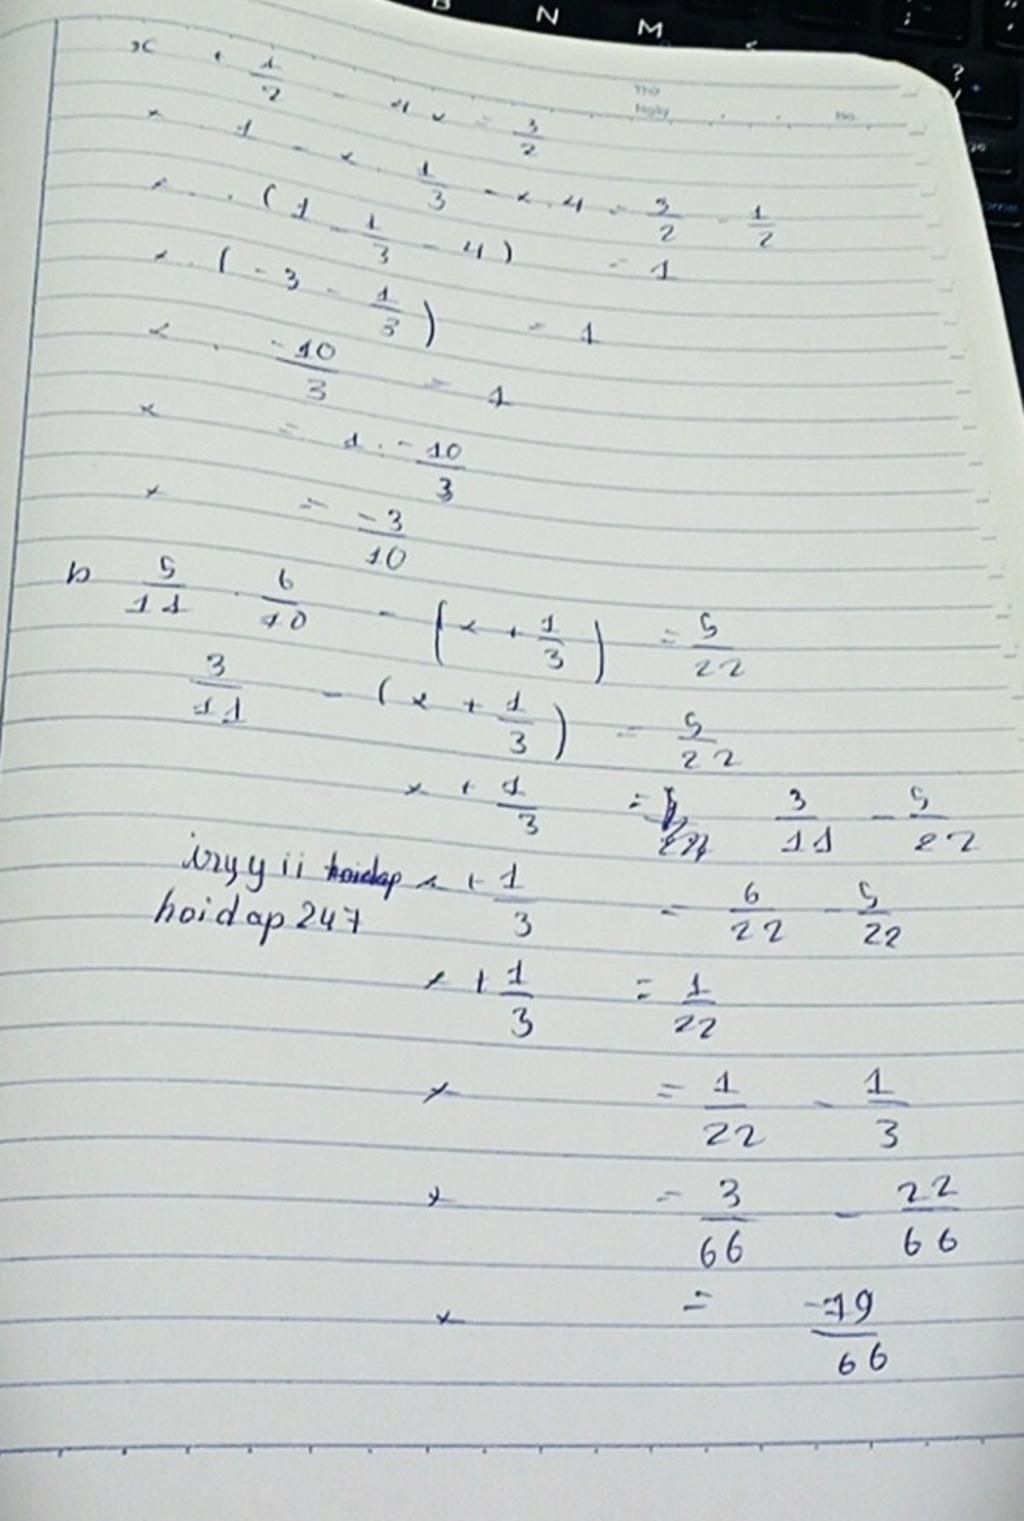 B N M
Thứ
Ngày No.
x + 1/2 - 4x = 3/2
x . 1 - x . 1/3 - x . 4 = 3/2 - 1/2
x . (1 - 1/3 - 4) = 1
x . (-3 - 1/3) = 1
x . -10/3 = 1
x = 1 : -10/3
x = -3/10
b 5/11 . 6/10 - (x + 1/3) = 5/22
3/11 - (x + 1/3) = 5/22
x + 1/3 = 3/11 - 5/22
x + 1/3 = 6/22 - 5/22
hoidap247
x + 1/3 = 1/22
x = 1/22 - 1/3
x = 3/66 - 22/66
x = -19/66